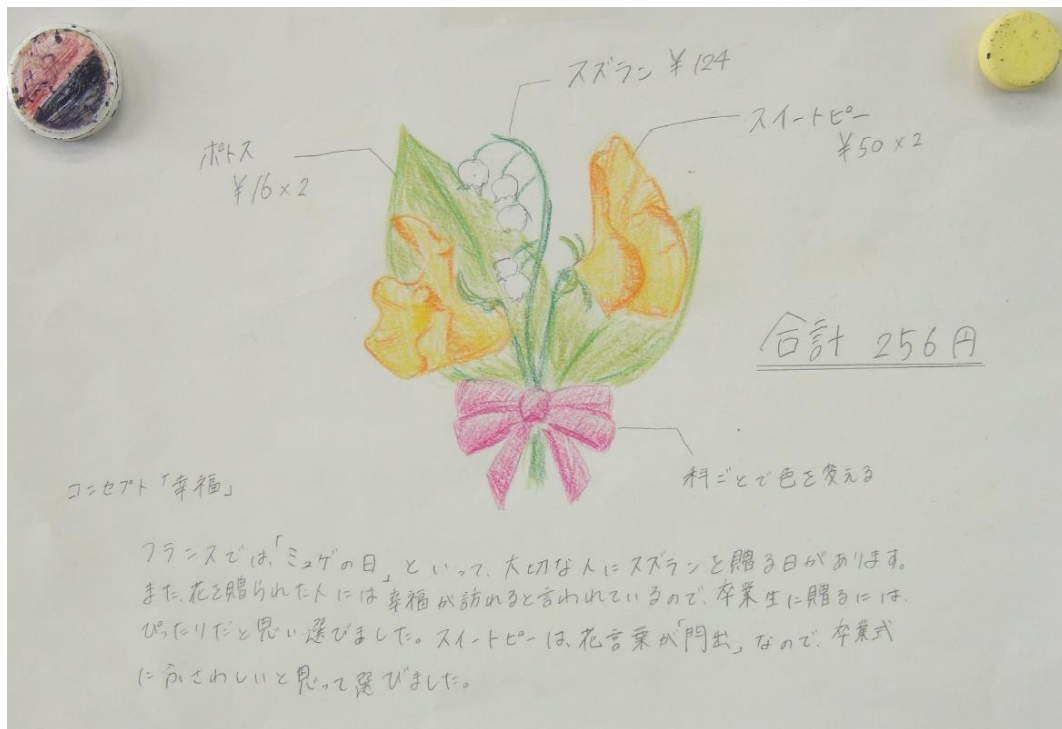 スズラン ¥124
スイートピー
¥50×2
ポトス
¥16×2
合計 256円
科ごとで色を変える
コンセプト「幸福」
フランスでは、「ミュゲの日」といって、大切な人にスズランを贈る日があります。
また、花を贈られた人には幸福が訪れると言われているので、卒業生に贈るには、
ぴったりだと思い選びました。スイートピーは、花言葉が「門出」なので、卒業式
にふさわしいと思って選びました。